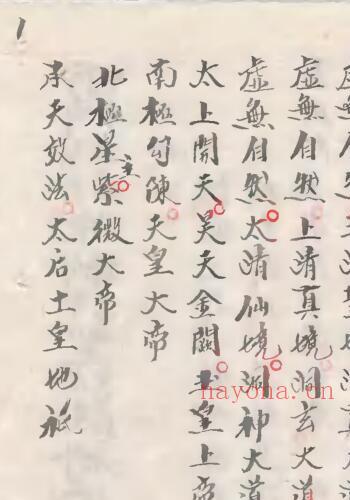 虛無自然上清真境洞玄大道
虛無自然太清仙境洞神大道
太上開天昊天金闕玉皇上帝
南極勾陳天皇大帝
北極星主紫微大帝
承天效法太后土皇地祇
1
hayona.cn